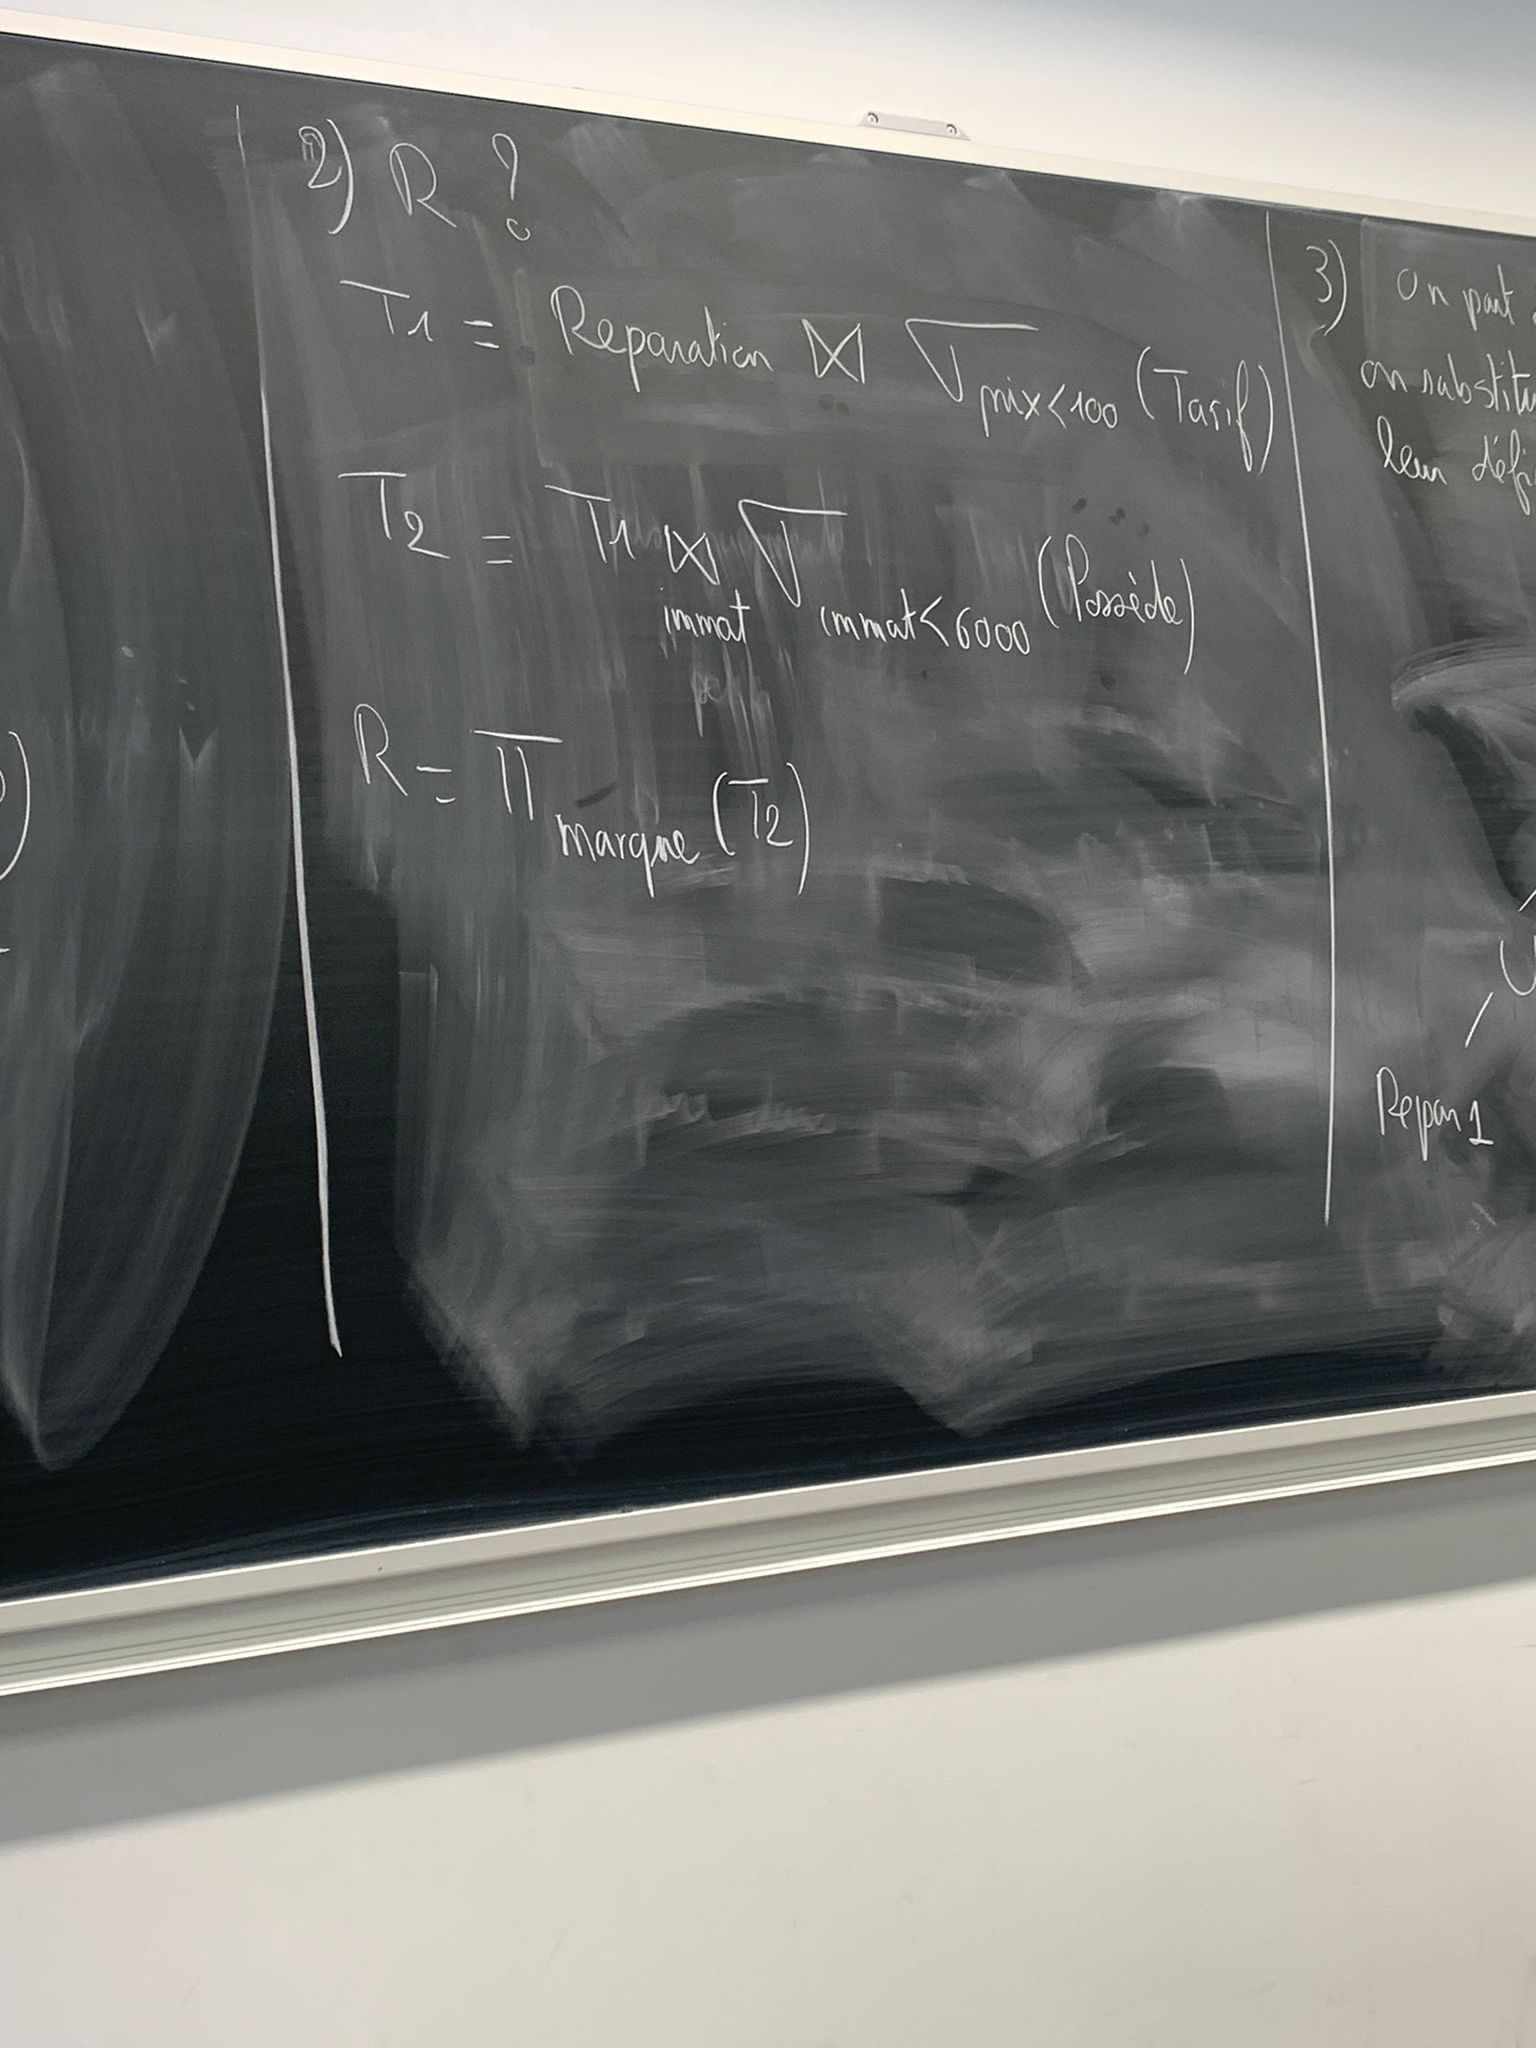 2) R ?
T1 = Reparation ⋈ σ prix<100 (Tarif)
T2 = T1 ⋈ immat σ immat<6000 (Possède)
R = Π marque (T2)
3) On part
on substitu
leur défi
U
Repar1